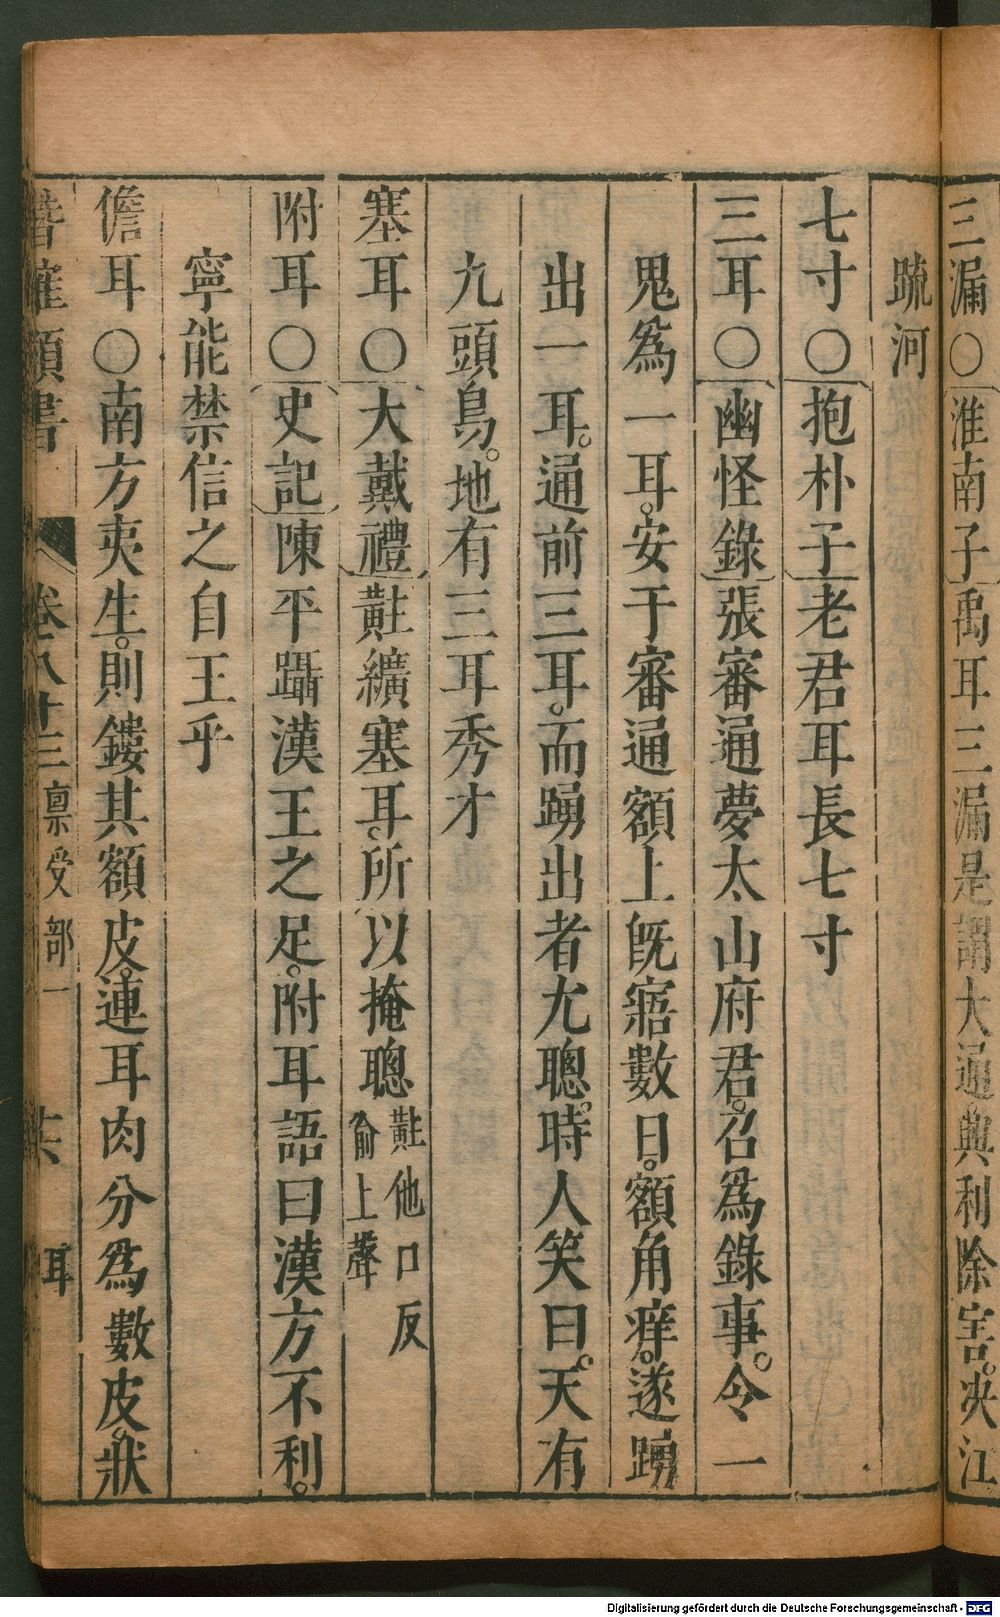 三漏○淮南子禹耳三漏是謂大通興利除害。决江
疏河
七寸○抱朴子老君耳長七寸
三耳○幽怪錄張審通夢太山府君。召爲錄事。令一
鬼爲一耳。安于審通額上旣寤數日。額角痒。遂踴
出一耳。通前三耳。而踴出者尤聰。時人笑曰。天有
九頭鳥。地有三耳秀才
塞耳○大戴禮黈纊塞耳。所以掩聰黈他口反
俞上聲
附耳○史記陳平躡漢王之足。附耳語曰漢方不利。
寧能禁信之自王乎
儋耳○南方夷生。則鏤其額皮。連耳肉分爲數皮。狀
卷八十三稟受部一 耳
Digitalisierung gefördert durch die Deutsche Forschungsgemeinschaft - DFG